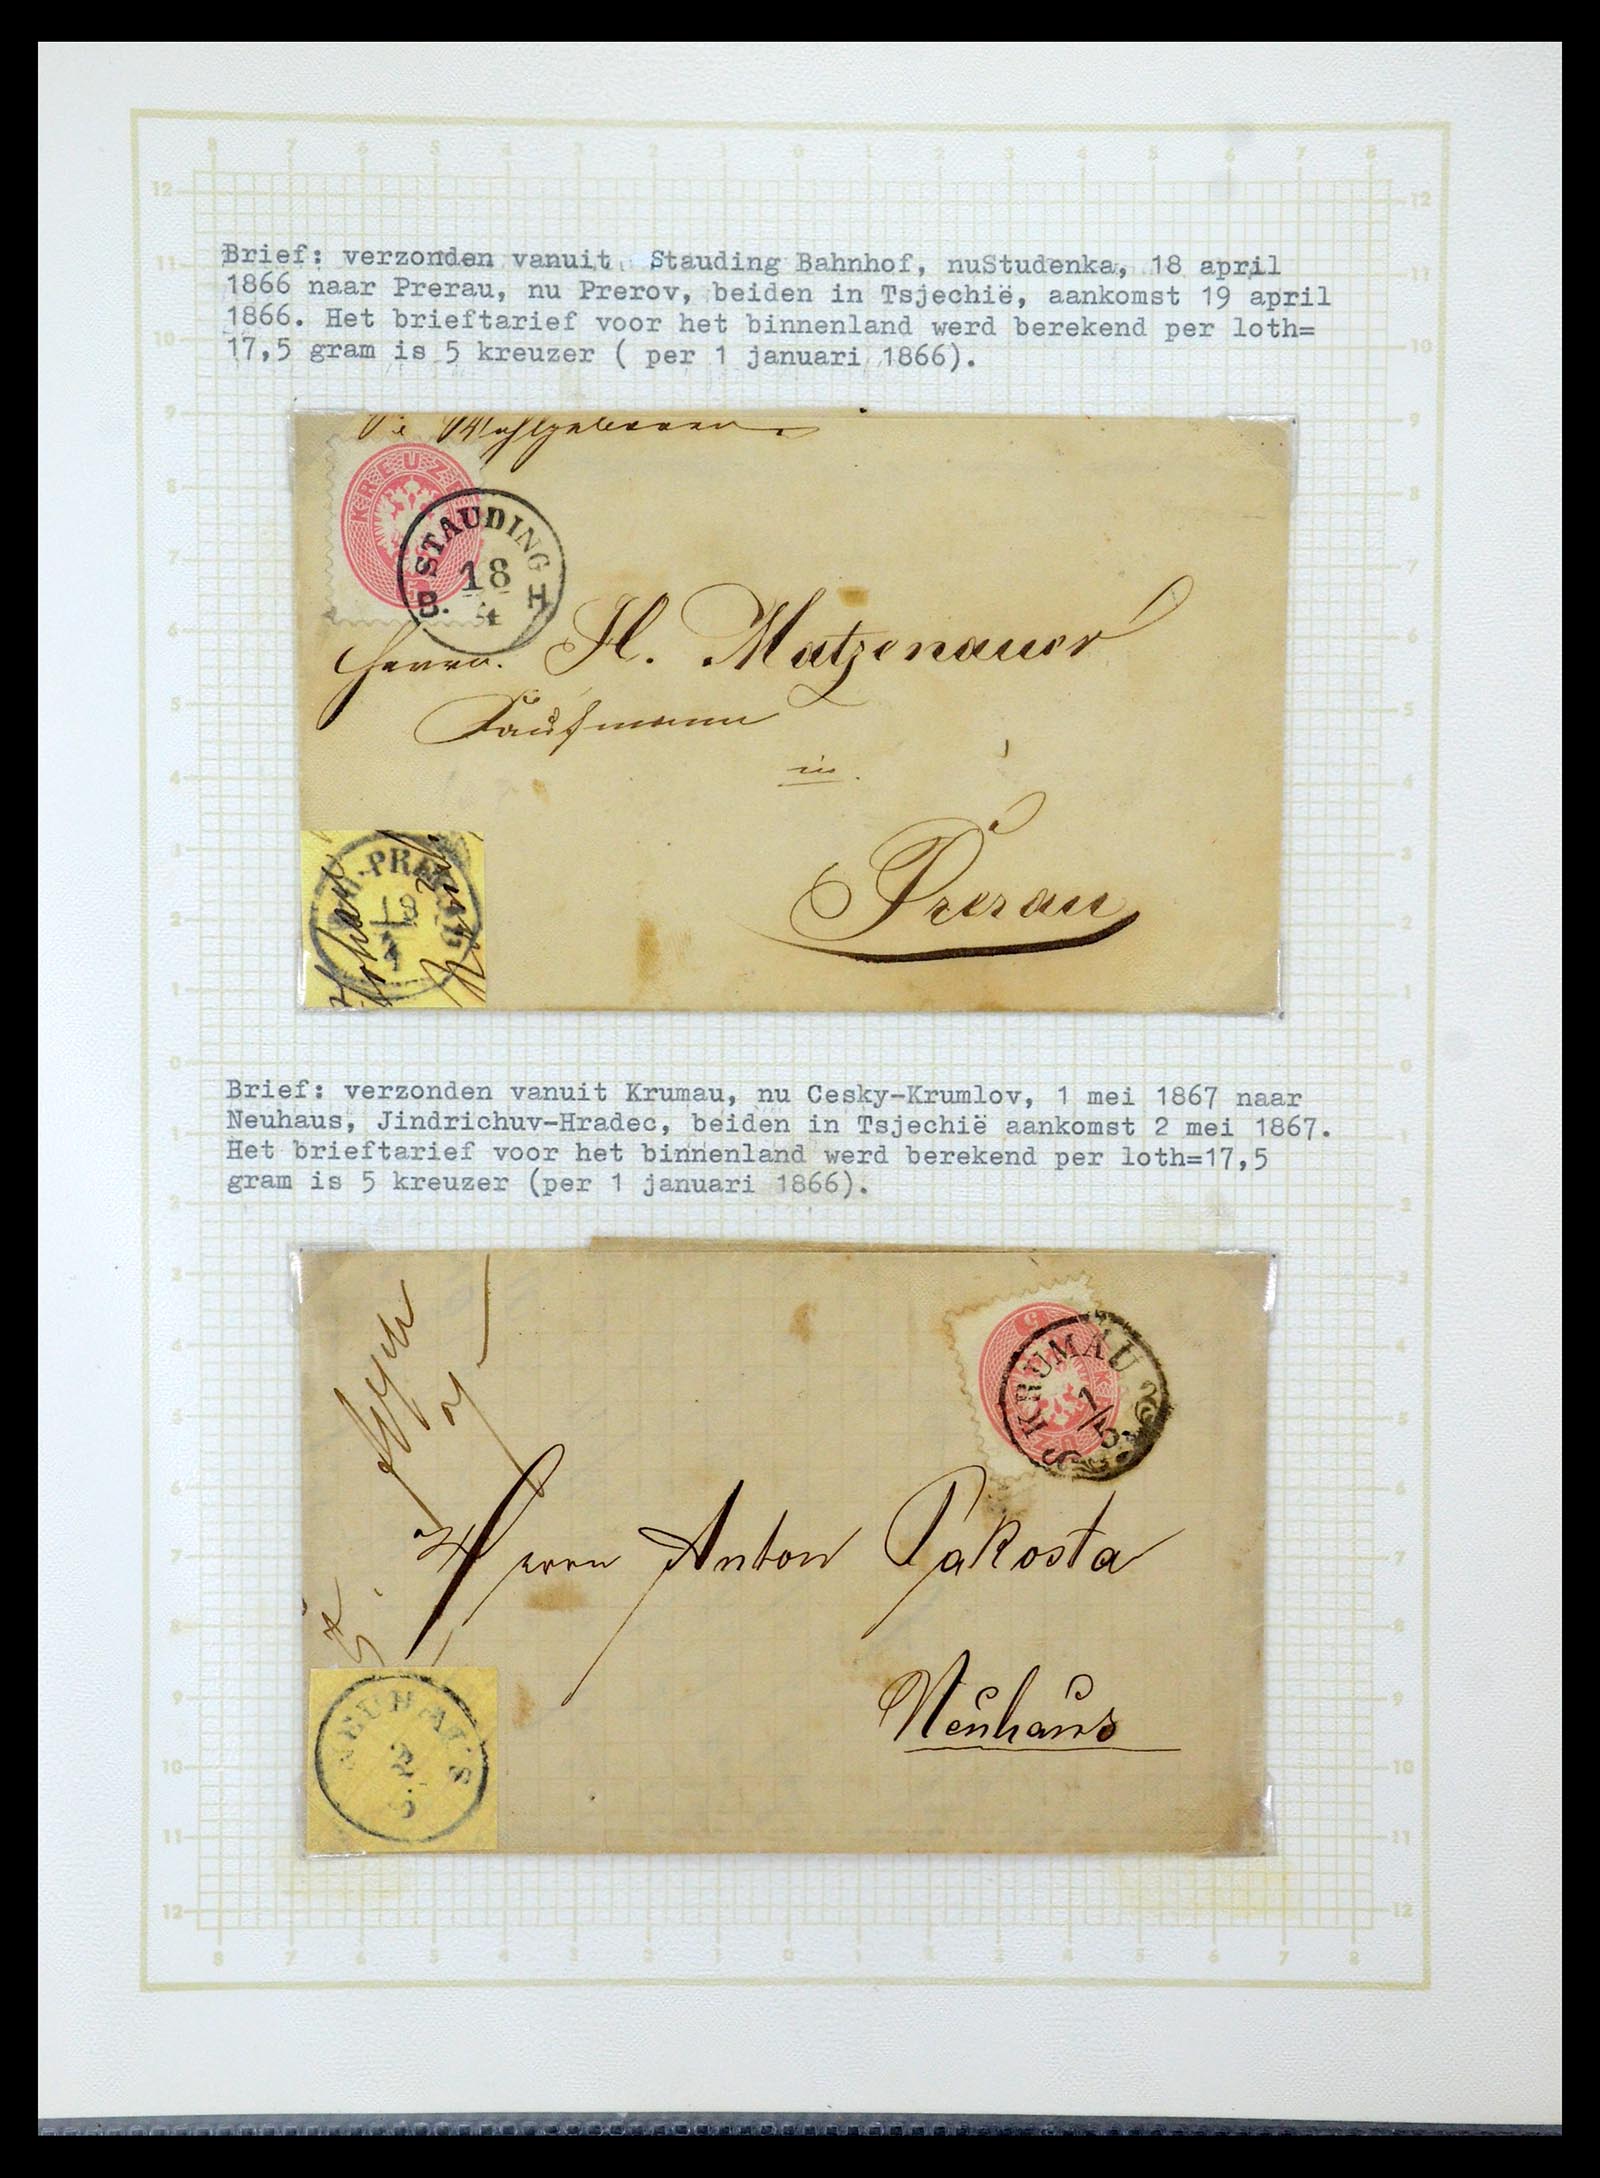 Brief: verzonden vanuit Stauding Bahnhof, nuStudenka, 18 april
1866 naar Prerau, nu Prerov, beiden in Tsjechië, aankomst 19 april
1866. Het brieftarief voor het binnenland werd berekend per loth=
17,5 gram is 5 kreuzer ( per 1 januari 1866).
STAUDING
18
4
B. H
Herrn. H. Matzenauer
Kaufmann
in
Prerau
Brief: verzonden vanuit Krumau, nu Cesky-Krumlov, 1 mei 1867 naar
Neuhaus, Jindrichuv-Hradec, beiden in Tsjechië aankomst 2 mei 1867.
Het brieftarief voor het binnenland werd berekend per loth=17,5
gram is 5 kreuzer (per 1 januari 1866).
5
KRUMAU
1/5
Herrn Anton Pakosta
Neuhaus
NEUHAUS
2
5